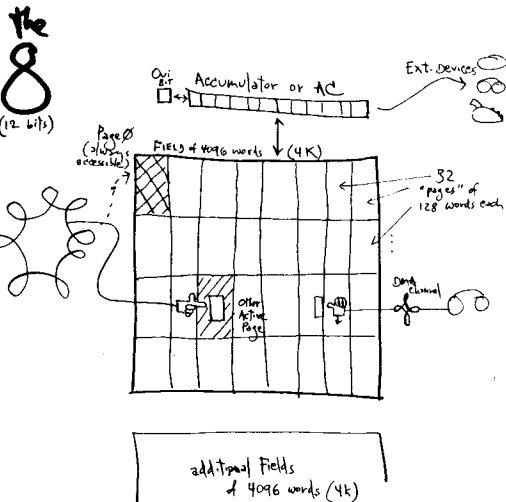 the
8
(12 bits)
Accumulator or AC
Ext. Devices
Page Ø
(always
accessible)
FIELD of 4096 words (4K)
32
"pages" of
128 words each
Other
Active
Page
Data
Channel
additional Fields
of 4096 words (4K)